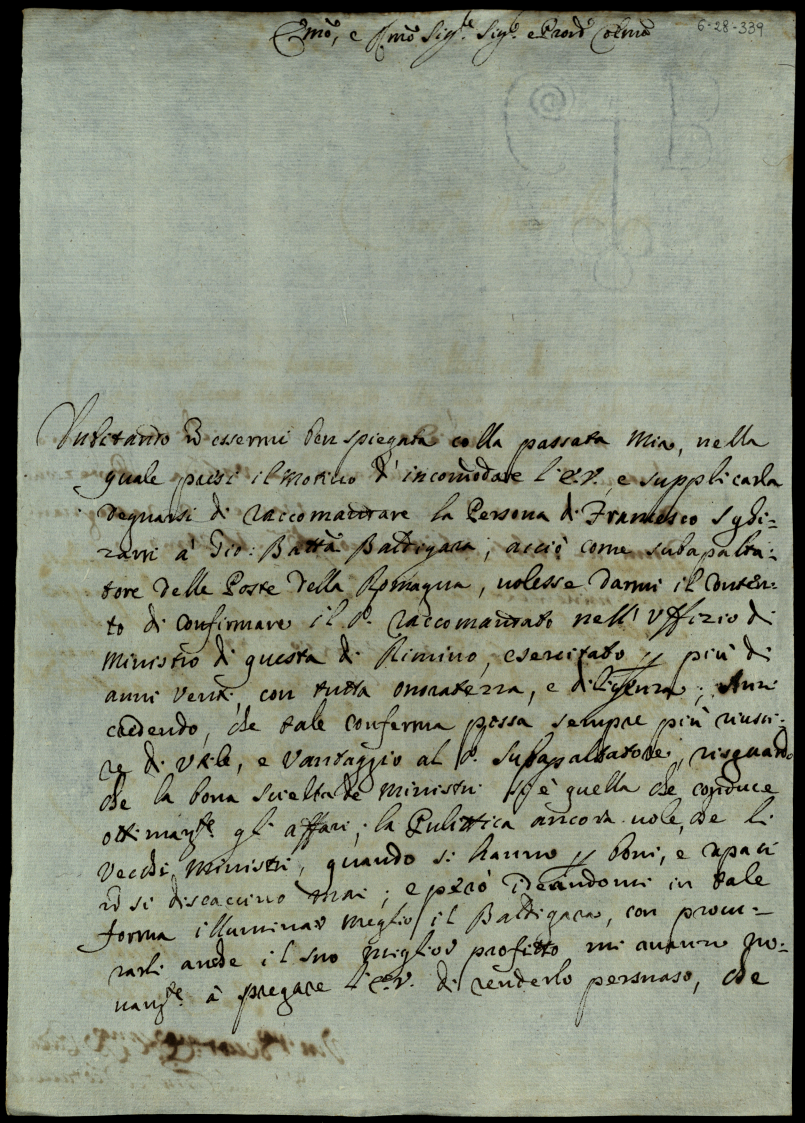 6-28-339
Emo, e Rmo Sigr. Sigr. e Prone Colmo
Dubitando di essermi ben spiegata colla passata Mia, nella
quale presi il Motivo d' incomodare l' E.V., e supplicarla
degnarsi di raccomandare la Persona di Francesco
à Gio: Batta Baldigara, acciò come subapalta-
tore delle Poste della Romagna, volesse darmi il conten-
to di confirmare il do. raccomandato nell' Uffizio di
Ministro di questa di Rimino, esercitato p più di
anni venti con tutta onoratezza, e diligenza; Anzi
credendo, che tale conferma possa sempre più riusci-
re di utile, e vantaggio al do. subapaltatore, risguardo
che la bona scielta de Ministri si è quella che conduce
ottimamte. gli affari; la Pulittica ancora vole, che li
vecchi Ministri, quando si hanno p boni, e capaci
si discaccino mai; e perciò ideandomi in tale
forma illuminar meglio il Baldigara, con procu-
rarli anche il suo miglior profitto mi avanzo no-
vamte. à pregare l' E.V. di renderlo persuaso, che